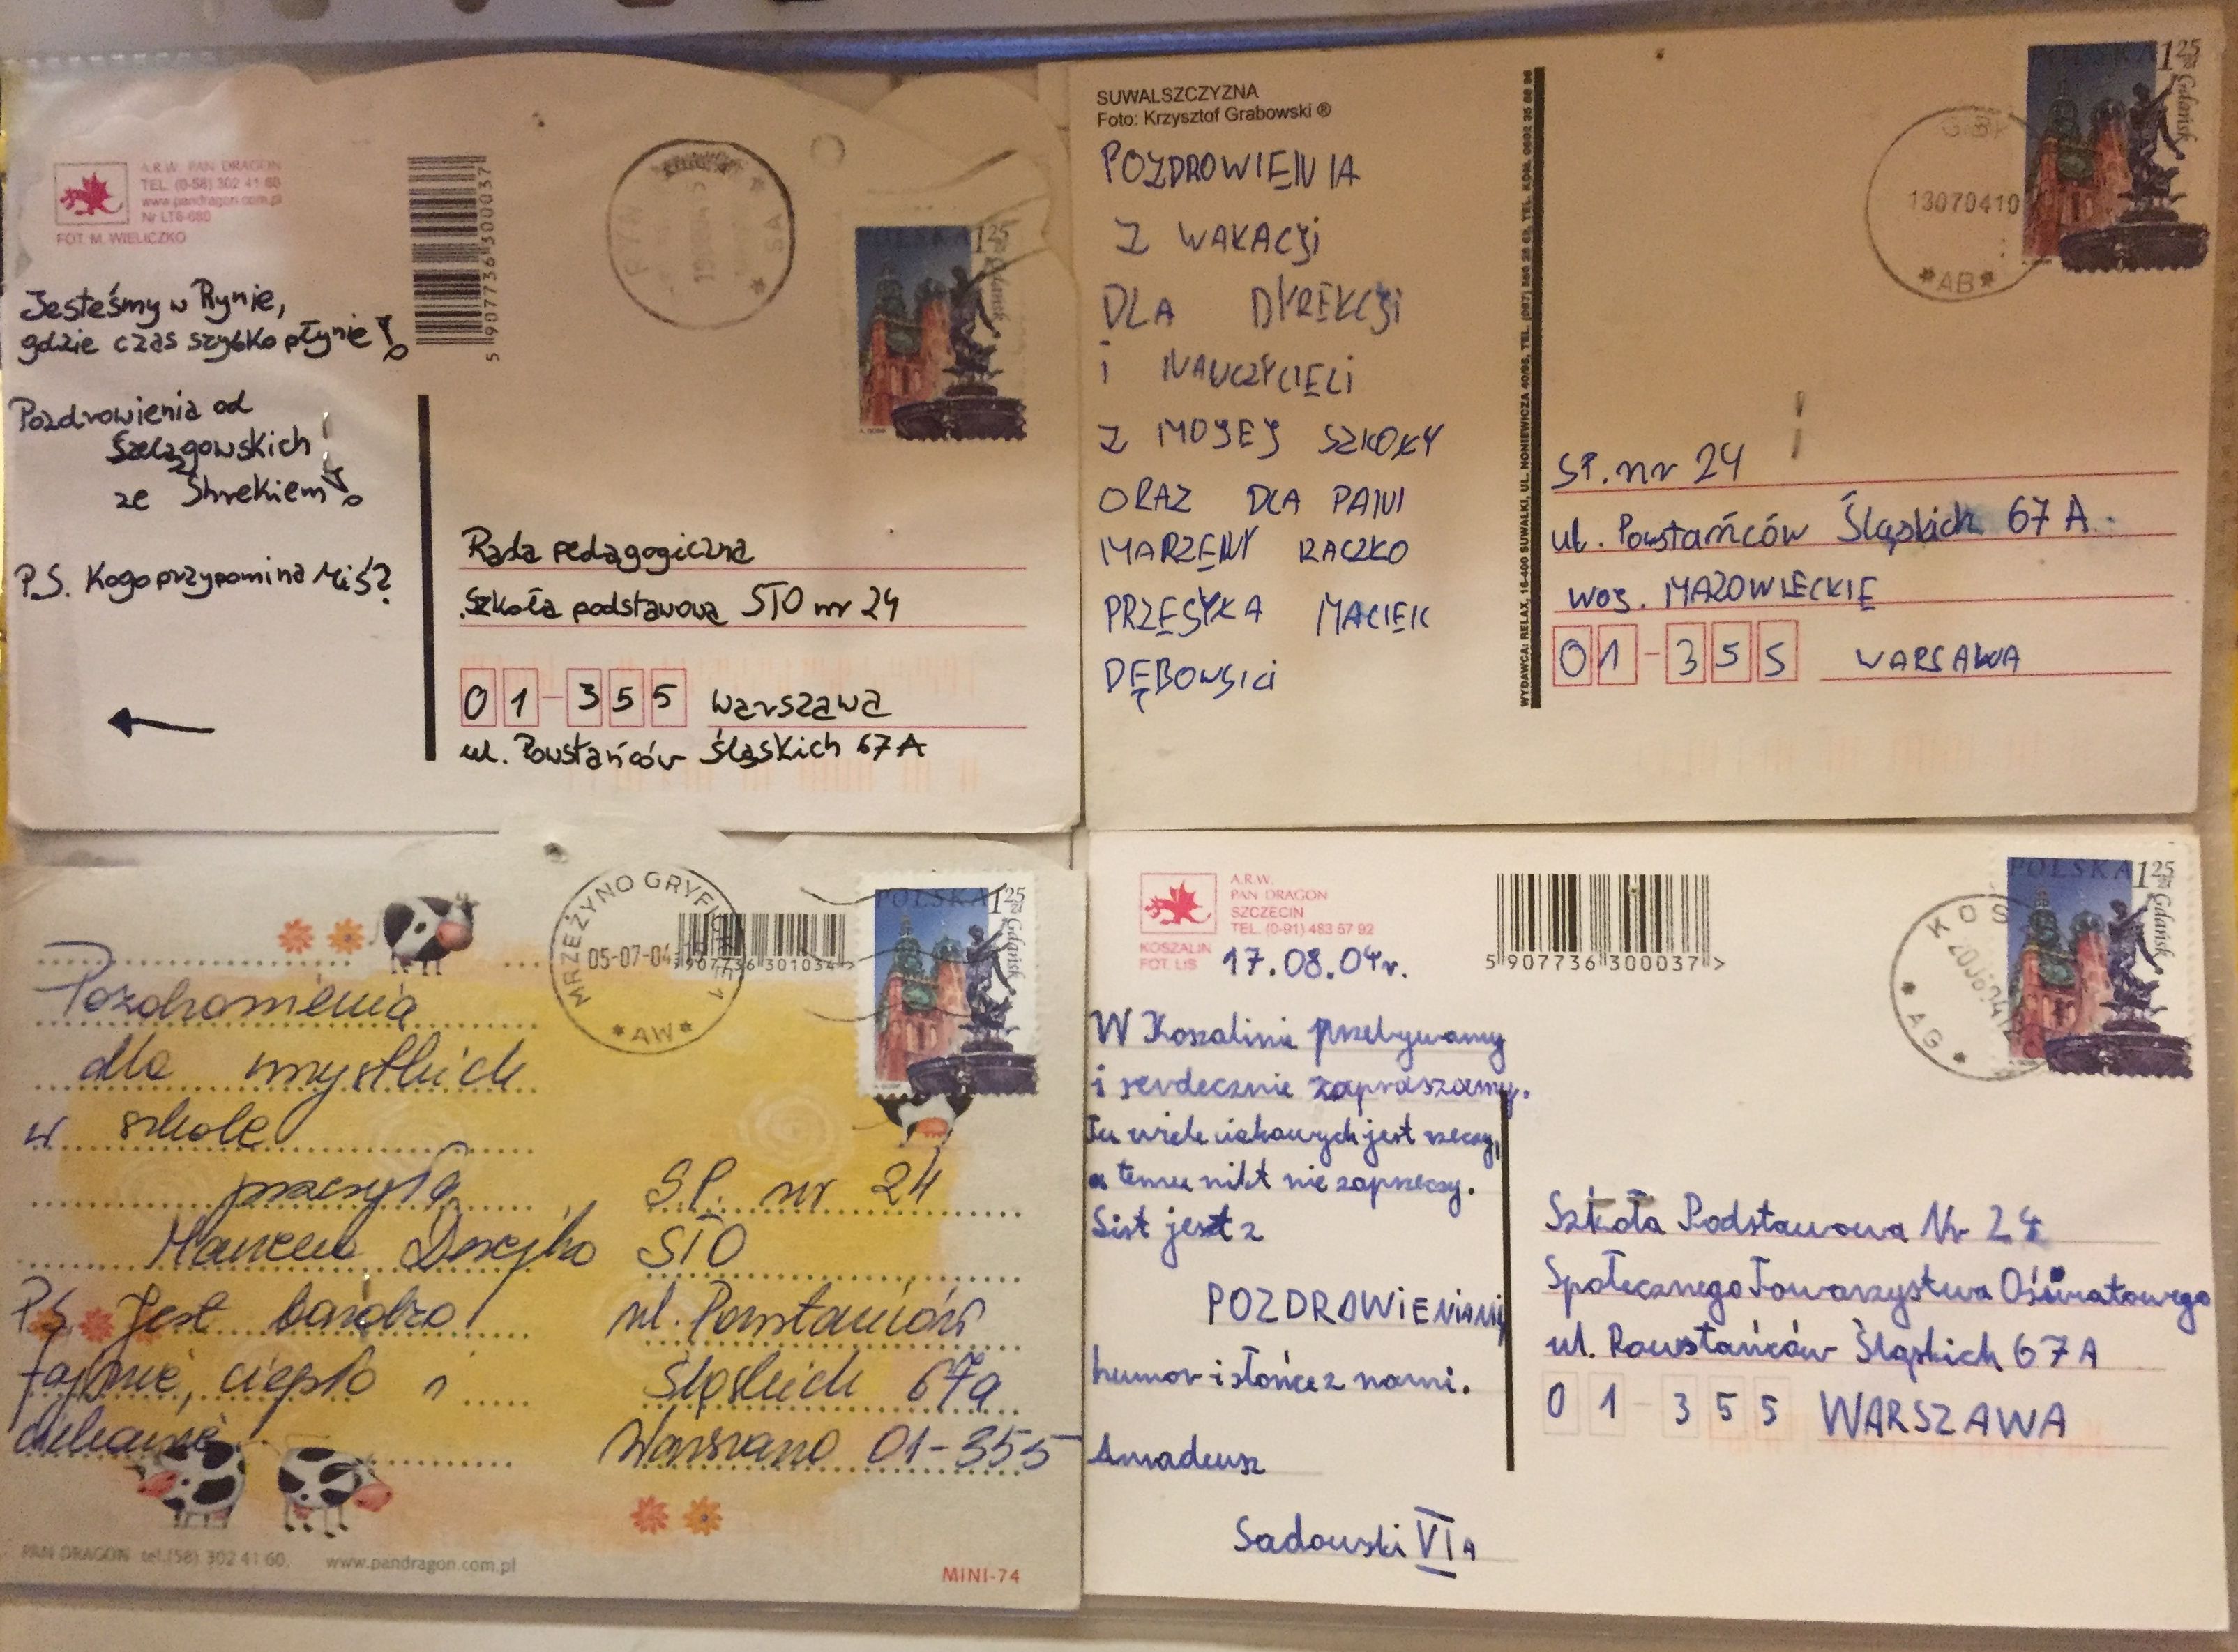 A.R.W. PAN DRAGON
TEL. (0-58) 302 41 60
www.pandragon.com.pl
Nr LT6-680
FOT. M. WIELICZKO
5 907736 300037
POLSKA 1 25 zł
Gdańsk
Jesteśmy w Rynie,
gdzie czas szybko płynie!
Pozdrowienia od
Szelągowskich
ze Shrekiem!
P.S. Kogo przypomina Miś?
Rada pedagogiczna
Szkoła podstawowa STO nr 24
01-355 Warszawa
ul. Powstańców Śląskich 67A
SUWALSZCZYZNA
Foto: Krzysztof Grabowski ®
POZDROWIENIA
Z WAKACJI
DLA DYREKCJI
i NAUCZYCIELI
Z MOJEJ SZKOŁY
ORAZ DLA PANI
MARZENY RACZKO
PRZESYŁA MACIEK
DĘBOWSKI
WYDAWCA: RELAX, 16-400 SUWAŁKI, UL. NONIEWICZA 40/65, TEL.
POLSKA 1 25 zł
Gdańsk
GIBY
13070410
*AB*
SP. nr 24
ul. Powstańców Śląskich 67A.
woj. MAZOWIECKIE
01-355 WARSAWA
MRZEŻYNO GRYFICKIE 1
05-07-04
*AW*
907736 301034>
POLSKA 1 25 zł
Gdańsk
Pozdrowienia
dla wszystkich
w szkole
przesyła
P.S. Jest bardzo
fajnie, ciepło i
ciekawie
S.P. nr 24
STO
ul. Powstańców
Śląskich 67a
Warszawa 01-355
PAN DRAGON tel.(58) 302 41 60. www.pandragon.com.pl
MINI-74
A.R.W.
PAN DRAGON
SZCZECIN
TEL. (0-91) 483 57 92
KOSZALIN
FOT. LIS
17.08.04r.
5 907736 300037 >
KOS
*AG*
POLSKA 1 25 zł
Gdańsk
W Koszalinie przebywamy
i serdecznie zapraszamy.
Tu wiele ciekawych jest rzeczy,
a temu nikt nie zaprzeczy.
List jest z
POZDROWIENIAMI,
humor i słońce z nami.
Amadeusz
Sadowski VI A
Szkoła Podstawowa Nr 24
Społecznego Towarzystwa Oświatowego
ul. Powstańców Śląskich 67A
01-355 WARSZAWA